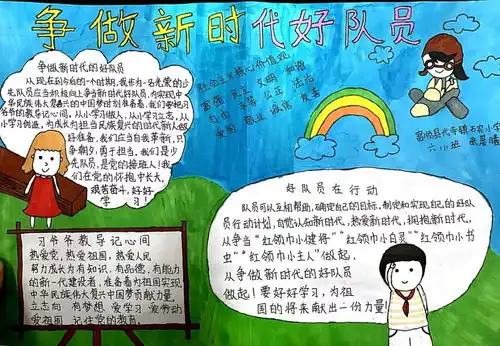 争做新时代好队员
争做新时代的好队员
从现在到今后的一个时期,我作为一名光荣的少
先队员应当积极向上争当新时代好队员,为实现中
华民族伟大复兴的中国梦时刻准备着,我们要把习
爷爷的教导记心间,从小学习做人,从小学习立志,从
小学习创造,为成长为担当民族复兴的时代新人做
好准备,我们应当自我革新,只
争朝夕,勇于担当,我们是少
先队员,是党的接班人!我
们在党的怀抱中长大,
艰苦奋斗,好好
学习!
社会主义核心价值观
富强 民主 文明 和谐
自由 平等 公正 法治
爱国 敬业 诚信 友善
六(1)班
好队员在行动
队员可以互相帮助,确定自己的目标,制定和实现自己的好队
员行动计划,自觉认知新时代,热爱新时代,拥抱新时代,
从争当“红领巾小健将”“红领巾小百灵”“红领巾小书
虫”“红领巾小主人”做起.
从争做新时代的好队员
做起!要好好学习,为祖
国的将来献出一份力量!
习爷爷教导记心间
热爱党,热爱祖国,热爱人民
努力成长为有知识,有品德,有能力
的新一代建设者,准备着为祖国实现
中华民族伟大复兴中国梦贡献力量.
立志向 有梦想 爱学习 爱劳动
爱祖国 记住党的教育.